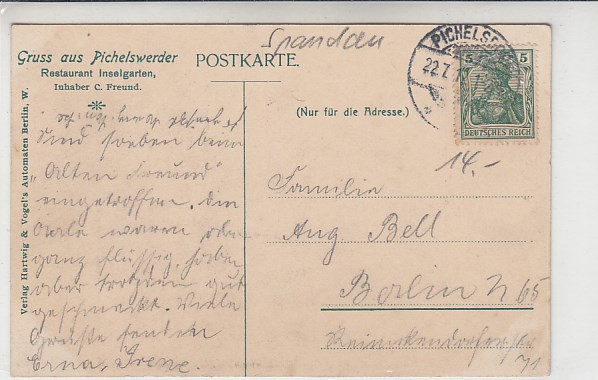 Gruss aus Pichelswerder
Restaurant Inselgarten,
Inhaber C. Freund.
POSTKARTE.
(Nur für die Adresse.)
Spandau
PICHELSD
22.7.
5 5
DEUTSCHES REICH
14.-
Sind soeben beim
„Alten Freund"
eingetroffen. Die
Aale waren
ganz flüssig, haben
aber trotzdem gut
geschmeckt. Viele
Grüsse senden
Erna,
Familie
Aug Bell
Berlin N 65
Reinickendorferstr
71
Verlag Hartwig & Vogel's Automaten Berlin, W.